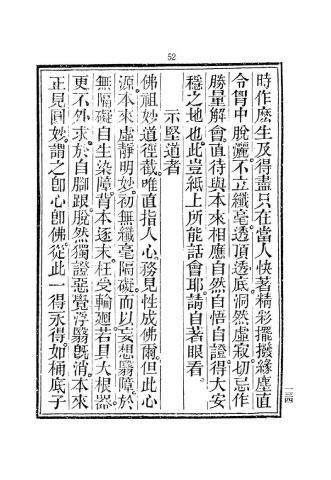 52
時作麽生及得盡只在當人快著精彩擺撥緣塵直
令胷中脫灑不立纖毫透頂透底洞然虛寂切忌作
勝量解會直待與本來相應自然自悟自證得大安
穩之地也此豈紙上所能話會耶請自著眼看
示堅道者
佛祖妙道徑截唯直指人心務見性成佛爾但此心
源本來虛靜明妙初無纖毫隔礙而以妄想翳障於
無隔礙自生染障背本逐末枉受輪迴若具大根器
更不外求於自腳跟脫然獨證惡覺浮翳旣消本來
正見圓妙謂之卽心卽佛從此一得永得如桶底子
一三四